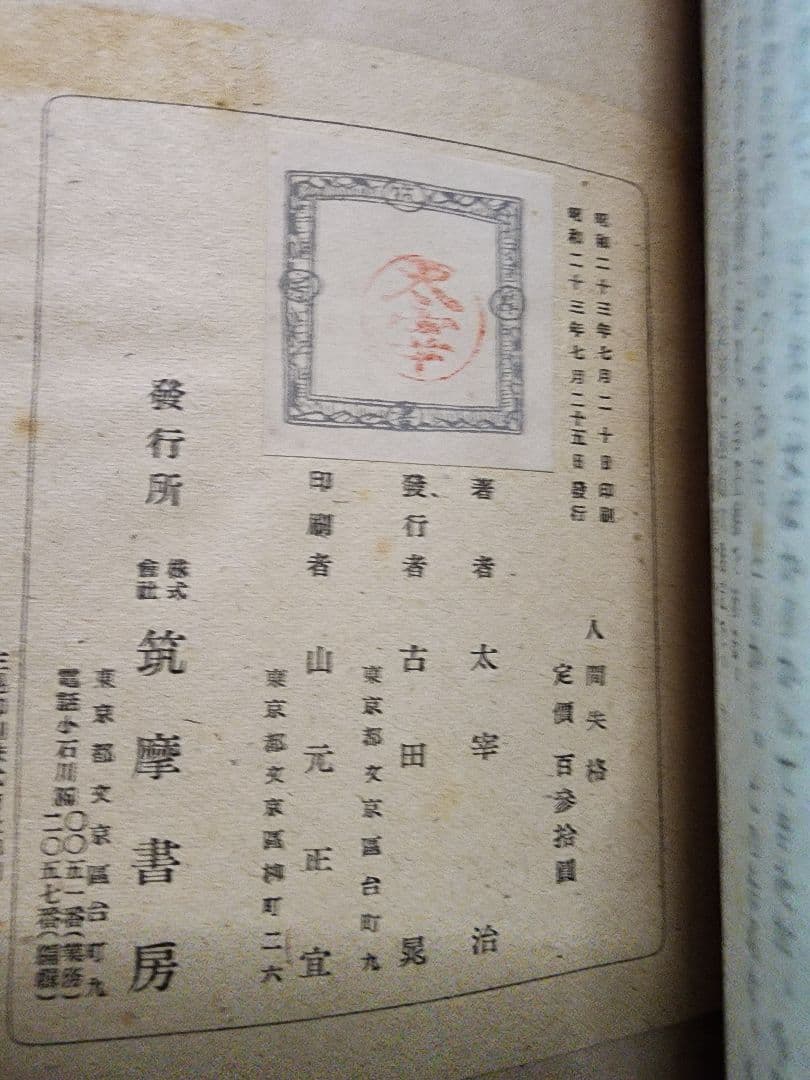 昭和二十三年七月二十日印刷
昭和二十三年七月二十五日發行
人間失格
定價 百參拾圓
太宰
著者 太宰治
發行者 古田晁
東京都文京區台町九
印刷者 山元正宜
東京都文京區柳町二六
發行所 株式會社 筑摩書房
東京都文京區台町九
電話小石川
〇〇五一番(業務)
二〇五七番(編輯)